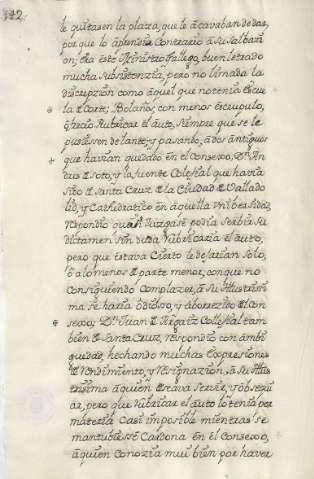 122.
le quitasen la plaza, que le acavaban de dar,
por que lo aprendia Contrario a su Salbazi
on; era este Ministro Gallego, buen letrado
mucha Subsistenzia, pero no limada la
discrepcion como aquel que no tenia Escue
la de Corte; Bolaños, con menos Escrupulo,
ofrecio Rubricar el auto, siempre que se le
pusiessen delante; y pasando, a dos antiguos
que havian quedado en el Consexo, Dn. An
dres de Soto, y la fuente Colexial que havia
sido de Santa Cruz de la Ciudad de Vallado
lid, y Cathedratico en aquella Universidad,
Respondio que si Juzgase podia servir su
dictamen sin duda Rubricaria el auto,
pero que estava Cierto le dejarian solo,
o a lo menos de parte menor, con que no
consiguiendo Complazer, a Su Illustrisi
ma se haria odioso, y aborrezido del Con
sexo; Dn. Juan de Collexial tam
bien de Santa Cruz, Respondio con ambi
guedad, hechando muchas Expresiones
de Rendimiento, y Resignazion, a Su Illus
trisima a quien deseava Servir, y obsequi
ar, pero que Rubricar el auto lo tenia por
materia Casi imposible mientras se
mantubiesse Cardona en el Consexo,
a quien Conozia mui bien por haver